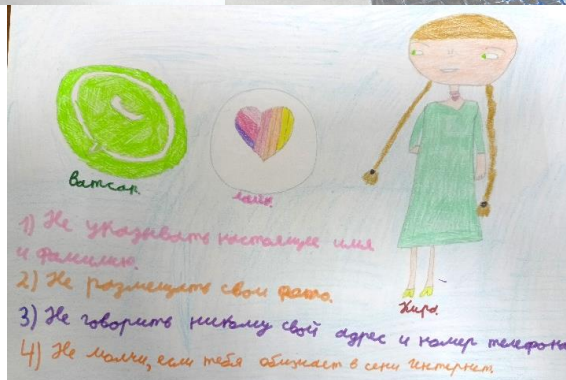 Ватсап.
лайк.
Кира.
1) Не указывать настоящее имя
и фамилию.
2) Не размещать свои фото.
3) Не говорить никому свой адрес и номер телефона
4) Не молчи, если тебя обижает в сети интернет